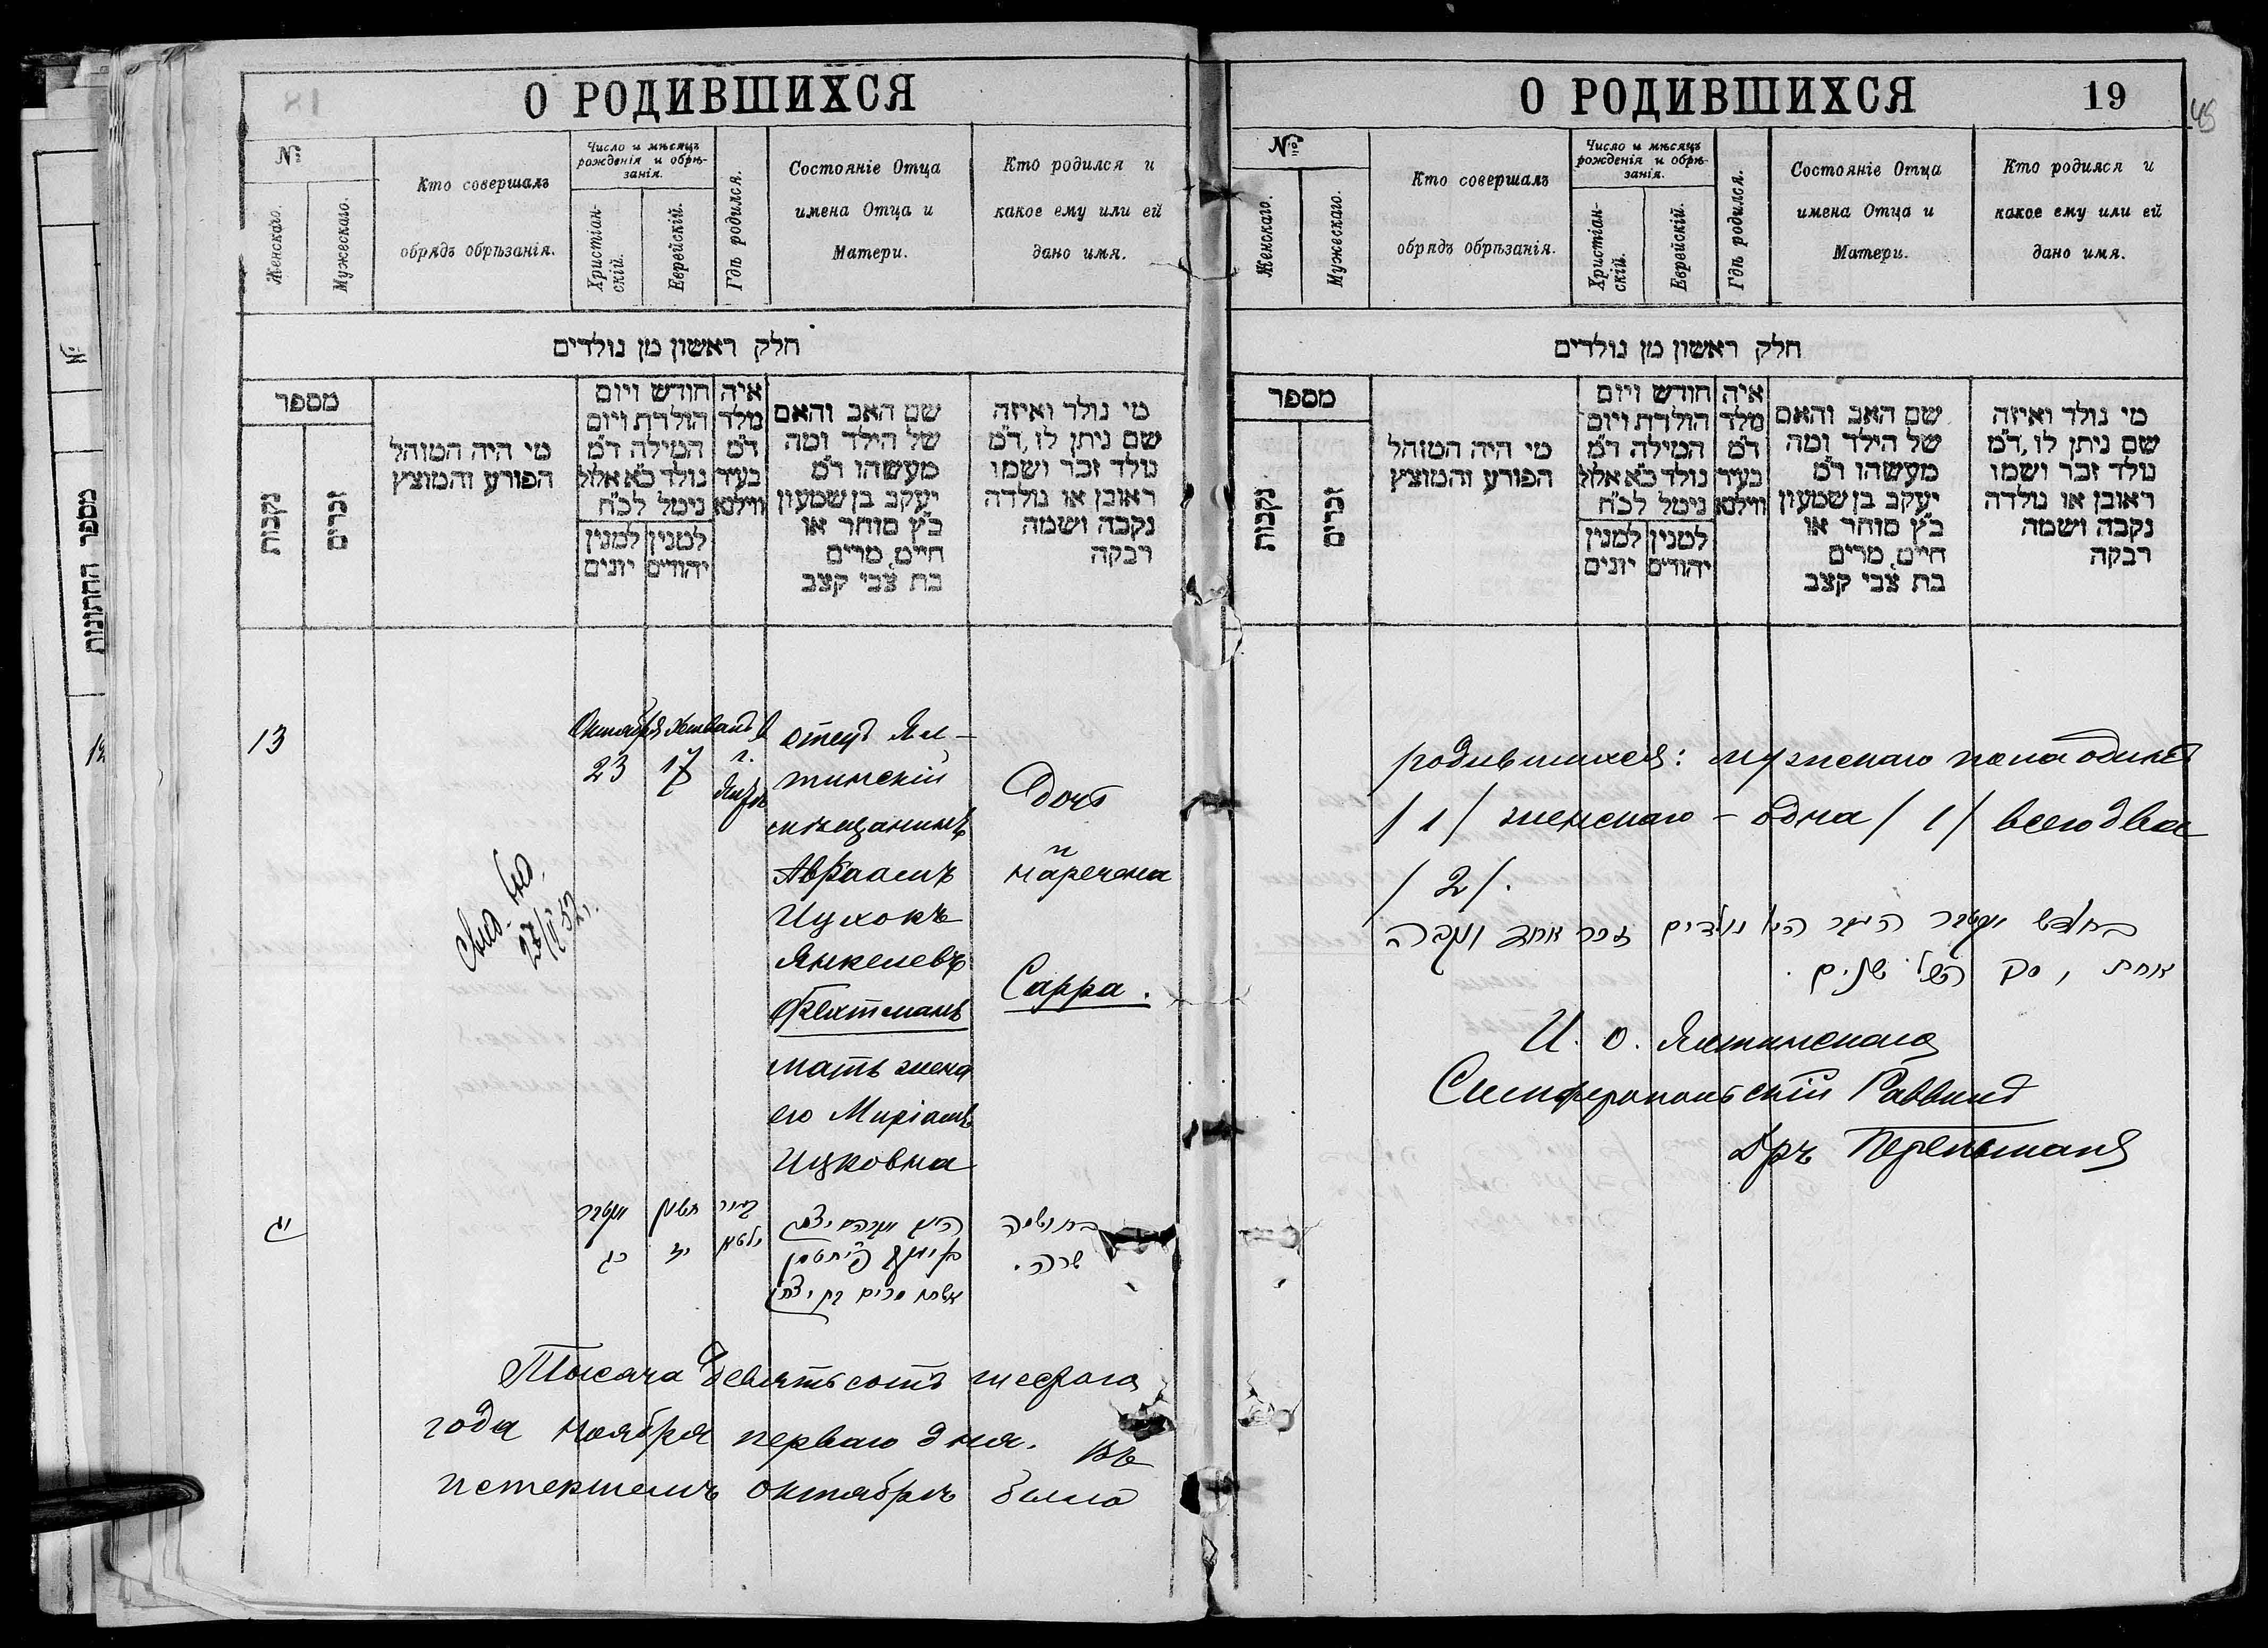 О РОДИВШИХСЯ
№
Женскаго.
Мужескаго.
Кто совершалъ
обрядъ обрѣзанія.
Число и мѣсяцъ
рожденія и обрѣ-
занія.
Христіан-
скій.
Еврейскій.
Гдѣ родился.
Состояніе Отца
имена Отца и
Матери.
Кто родился и
какое ему или ей
дано имя.
חלק ראשון מן נולדים
מספר
נקבות
זכרים
מי היה המוהל
הפורע והמוצץ
חודש ויום
הולדת ויום
המילה ד"מ
נולד כ"א אלול
נימל לכ"ח
למנין
יונים
למנין
יהודים
איה
מלד
ד"מ
בעיר
ווילנא
שם האב והאם
של הילד ומה
מעשהו ד"מ
יעקב בן שמעון
כ"ץ סוחר או
חייט, מרים
בת צבי קצב
מי נולד ואיזה
שם ניתן לו, ד"מ
נולד זכר ושמו
ראובן או נולדה
נקבה ושמה
רבקה
13
Октября
23
Хешванъ
17
в
г.
Ялтѣ
отецъ Ял-
тинскій
мѣщанинъ
Авраамъ
Ицхокъ
Янкелевъ
Фехтманъ
мать жена
его Миріамъ
Ицковна
Дочь
нареченa
Сарра.
יג
אקטאבר
כג
חשון
יז
בעיר
יאלטא
האב אברהם יצחק
בן יעקב פעחטמאן
אשתו מרים בת יצחק
בת ושמה
שרה.
Тысяча девятьсотъ шестого
года ноября перваго дня. Въ
истекшемъ октябрѣ было
О РОДИВШИХСЯ
19
№
Женскаго.
Мужескаго.
Кто совершалъ
обрядъ обрѣзанія.
Число и мѣсяцъ
рожденія и обрѣ-
занія.
Христіан-
скій.
Еврейскій.
Гдѣ родился.
Состояніе Отца
имена Отца и
Матери.
Кто родился и
какое ему или ей
дано имя.
חלק ראשון מן נולדים
מספר
נקבות
זכרים
מי היה המוהל
הפורע והמוצץ
חודש ויום
הולדת ויום
המילה ד"מ
נולד כ"א אלול
נימל לכ"ח
למנין
יונים
למנין
יהודים
איה
מלד
ד"מ
בעיר
ווילנא
שם האב והאם
של הילד ומה
מעשהו ד"מ
יעקב בן שמעון
כ"ץ סוחר או
חייט, מרים
בת צבי קצב
מי נולד ואיזה
שם ניתן לו, ד"מ
נולד זכר ושמו
ראובן או נולדה
נקבה ושמה
רבקה
родившихся: мужскаго пола одинъ
/1/ женскаго – одна /1/ всего двое
/2/.
בחודש אקטאבר העבר היו נולדים זכר אחד ונקבה
אחת, סך הכל שנים.
И. о. Ялтинскаго
Симферопольскій Раввинъ
Д-ръ Перельманъ